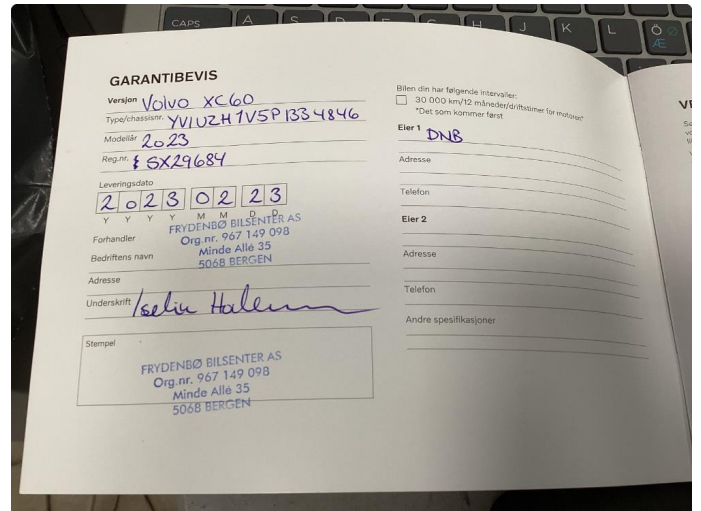 CAPS A S D H J K L Ö Ø
Æ
GARANTIBEVIS
Versjon Volvo XC60
Type/chassisnr. YV1UZH1V5P1334846
Modellår 2023
Reg.nr. SX29684
Leveringsdato
2 0 2 3 0 2 2 3
Y Y Y Y M M D D
Forhandler
FRYDENBØ BILSENTER AS
Org.nr. 967 149 098
Bedriftens navn
Minde Allé 35
5068 BERGEN
Adresse
Underskrift Iselin
Stempel
FRYDENBØ BILSENTER AS
Org.nr. 967 149 098
Minde Allé 35
5068 BERGEN
Bilen din har følgende intervaller:
30 000 km/12 måneder/driftstimer for motoren*
*Det som kommer først
Eier 1 DNB
Adresse
Telefon
Eier 2
Adresse
Telefon
Andre spesifikasjoner